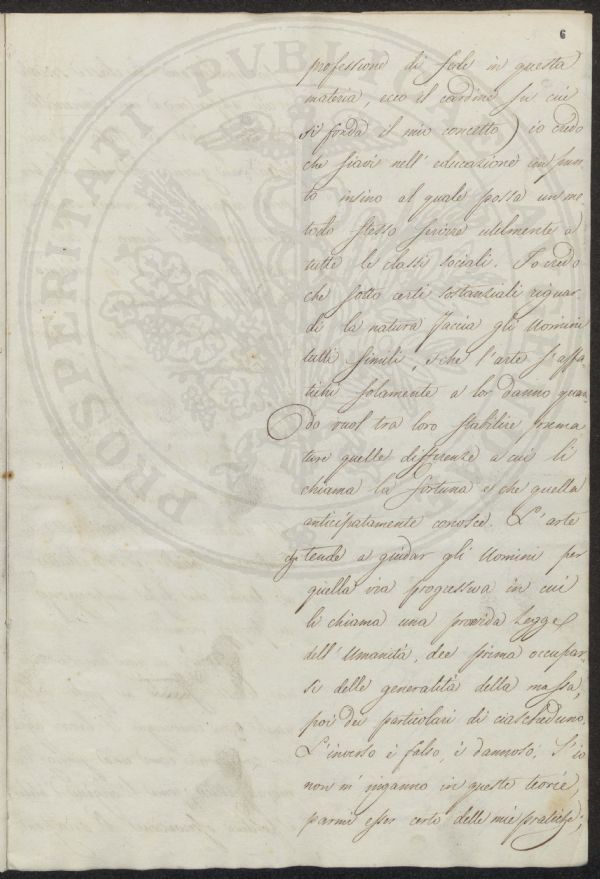 6
professione di fede in questa
materia, ecco il cardine su cui
si fonda il mio concetto) io credo
che siavi nell' educazione un pun
to insino al quale possa un me
todo stesso servire utilmente a
tutte le classi sociali. Io credo
che sotto certi sostanziali riguar
di la natura faccia gli Uomini
tutti simili, e che l'arte s'affa
tichi solamente a lor danno quan
do vuol tra loro stabilire prema
ture quelle differenze a cui li
chiama la fortuna e che quella
anticipatamente conosce. L'arte
che tende a guidar gli Uomini per
quella via progressiva in cui
li chiama una provida Legge
dell' Umanità, dee prima occupar
si delle generalità della massa,
poi dei particolari di ciascheduno.
L'inverso è falso, è dannoso. S'io
non m' inganno in queste teorie,
parmi esser certo delle mie pratiche;
PROSPERITATI PVBLICAE